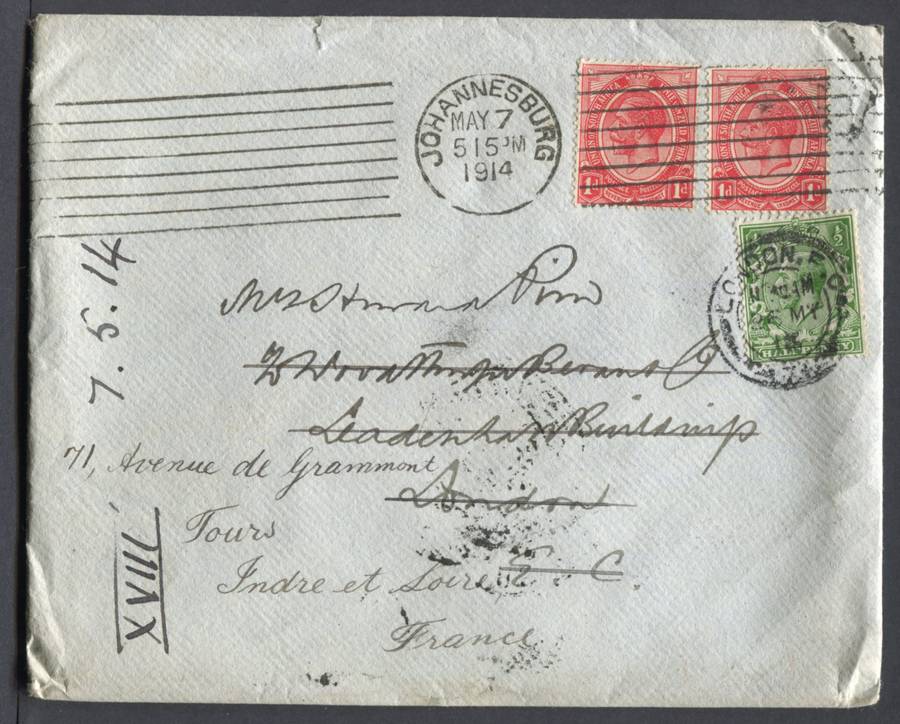 JOHANNESBURG
MAY 7
515 PM
1914
UNION OF SOUTH AFRICA
1d 1d
1d 1d
½
LONDON, E.C.
AM
MY
14
HALFPENNY
7.5.14
Mrs Howard Pim
Leadenhall Buildings
London
E C
71, Avenue de Grammont
Tours
Indre et Loire
France
XVIII